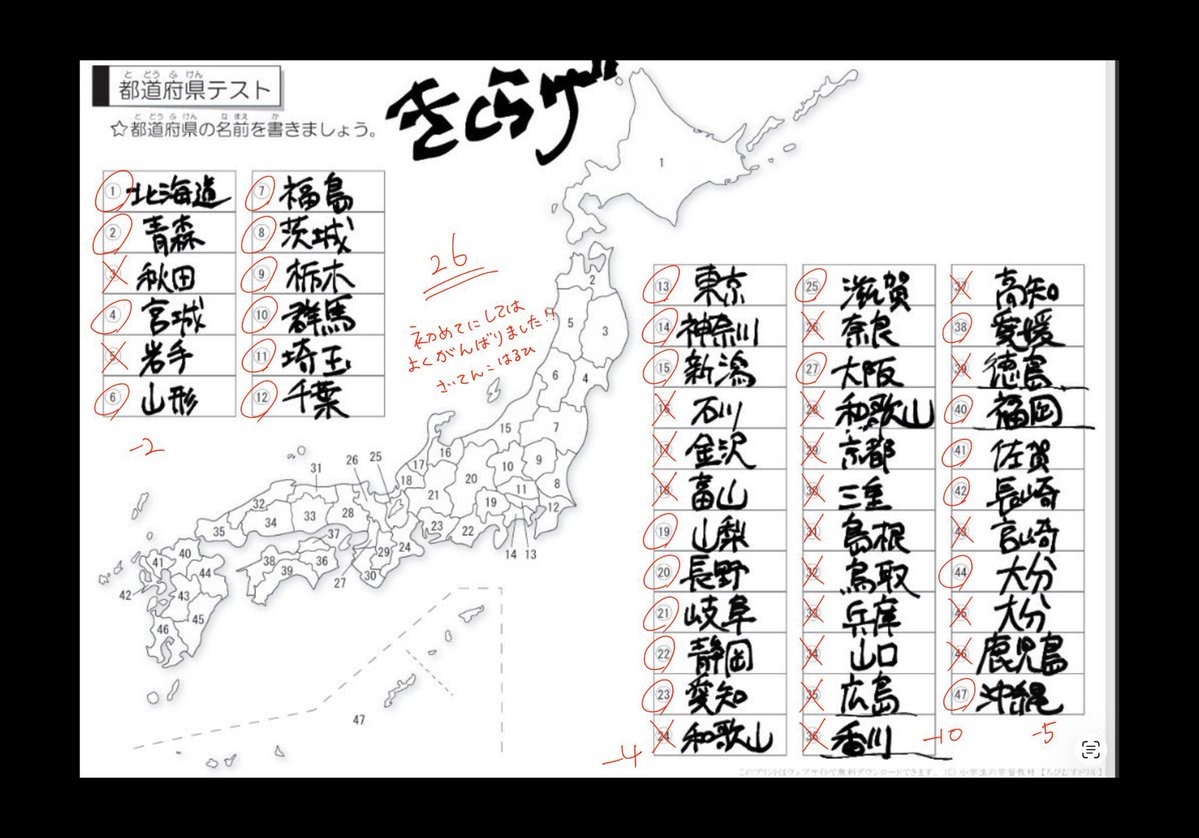 と どう ふ けん
都道府県テスト
と どう ふ けん な まえ か
☆都道府県の名前を書きましょう。
きくらげ
① 北海道
② 青森
③ 秋田
④ 宮城
⑤ 岩手
⑥ 山形
-2
⑦ 福島
⑧ 茨城
⑨ 栃木
⑩ 群馬
⑪ 埼玉
⑫ 千葉
26
初めてにしては
よくがんばりました!?
こはるひ
⑬ 東京
⑭ 神奈川
⑮ 新潟
⑯ 石川
⑰ 金沢
⑱ 富山
⑲ 山梨
⑳ 長野
㉑ 岐阜
㉒ 静岡
㉓ 愛知
㉔ 和歌山
-4
㉕ 滋賀
㉖ 奈良
㉗ 大阪
㉘ 和歌山
㉙ 京都
㉚ 三重
㉛ 島根
㉜ 鳥取
㉝ 兵庫
㉞ 山口
㉟ 広島
㊱ 香川
-10
㊲ 高知
㊳ 愛媛
㊴ 徳島
㊵ 福岡
㊶ 佐賀
㊷ 長崎
㊸ 宮崎
㊹ 大分
㊺ 大分
㊻ 鹿児島
㊼ 沖縄
-5
1
2
5 3
6 4
15 7
16 10 9
17 20 11 8
18 21 19 12
31 26 25
32 34 33 28
35 37 29 24 23 22 14 13
38 39 36 27 30
41 40 44
42 43 45
46
47
このプリントはウェブサイトで無料ダウンロードできます。 (C)小学生の学習教材【ちびむすドリル】